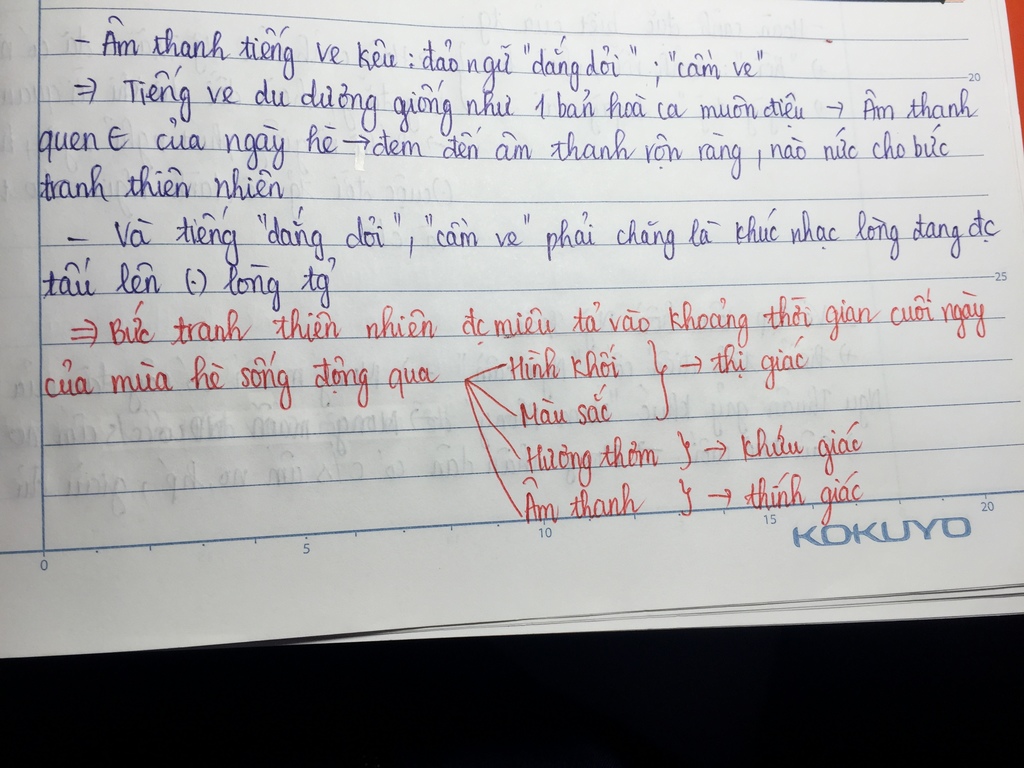 - Âm thanh tiếng ve kêu : đảo ngữ "dắng dỏi" ; "cầm ve"
20
⇒ Tiếng ve du dương giống như 1 bản hoà ca muôn điệu → Âm thanh
quen ∈ của ngày hè → đem đến âm thanh rộn ràng, náo nức cho bức
tranh thiên nhiên
- Và tiếng "dắng dỏi", "cầm ve" phải chăng là khúc nhạc lòng đang đc
25
tấu lên (.) lòng tg
⇒ Bức tranh thiên nhiên đc miêu tả vào khoảng thời gian cuối ngày
của mùa hè sống động qua Hình khối } → thị giác
Màu sắc
Hương thơm } → khứu giác
Âm thanh } → thính giác
0 5 10 15 20
KOKUYO